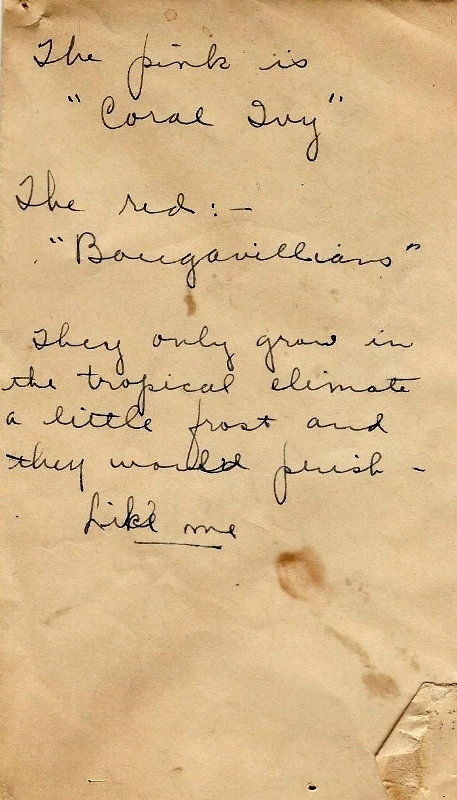 The pink is
"Coral Ivy"
The red:-
"Bougavillians"
They only grow in
the tropical climate
a little frost and
they would perish -
Like me